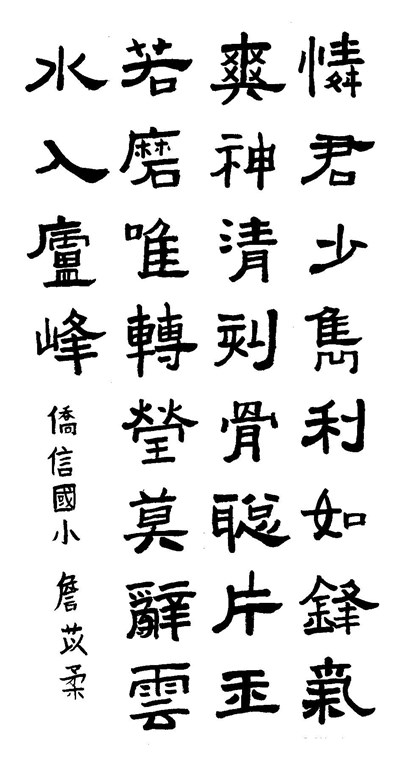 憐君少雋利如鋒氣
爽神清刻骨聰片玉
若磨唯轉瑩莫辭雲
水入廬峰
僑信國小 詹苡柔